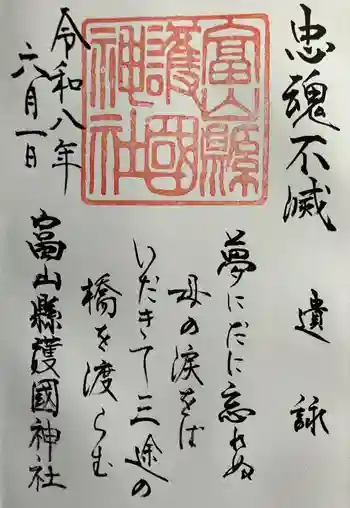 忠魂不滅
遺詠
夢にだに忘れぬ
母の涙をば
いだきて三途の
橋を渡らむ
富山縣
護國
神社
令和八年
六月一日
富山縣護國神社